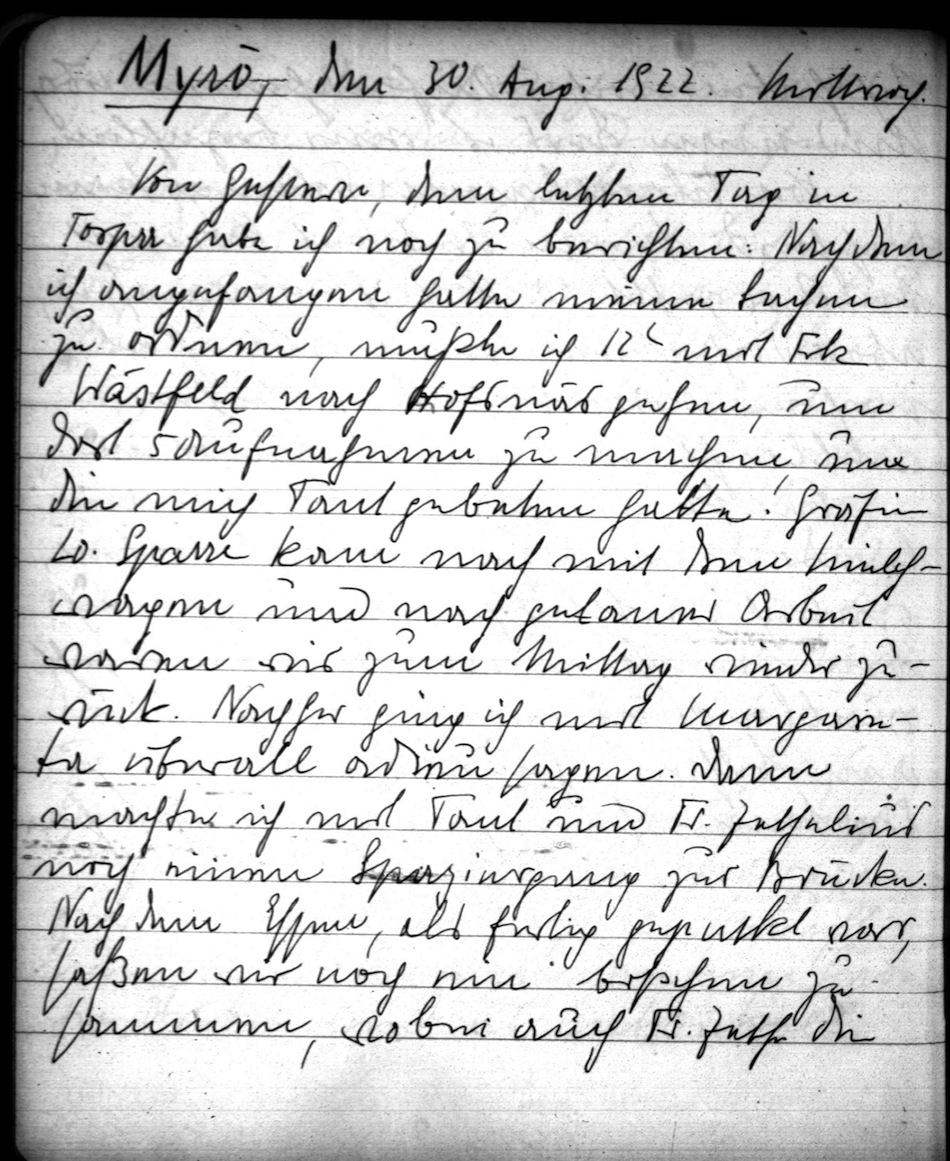 Myrö, den 30. Aug. 1922. Mittwoch.
Von gestern, dem letzten Tag in
Torpa habe ich noch zu berichten: Nachdem
ich angefangen hatte meine Sachen
zu ordnen, mußte ich 12 mit Frk
Wästfeld nach Hofsnäs gehen, um
dort 5 Aufnahmen zu machen, um
die mich Tant gebeten hatte. Gräfin
Sparre kam nach mit dem Milch-
wagen und nach getaner Arbeit
waren wir zum Mittag wieder zu-
rück. Nachher ging ich mit Margare-
ta überall adieu sagen. Dann
machte ich mit Tant und Fr. Zethelius
noch einen Spaziergang zur Brücke.
Nach dem Essen, als fertig gepackt war,
saßen wir noch ein bißchen zu
sammen, wobei auch Fr. Zeth. die